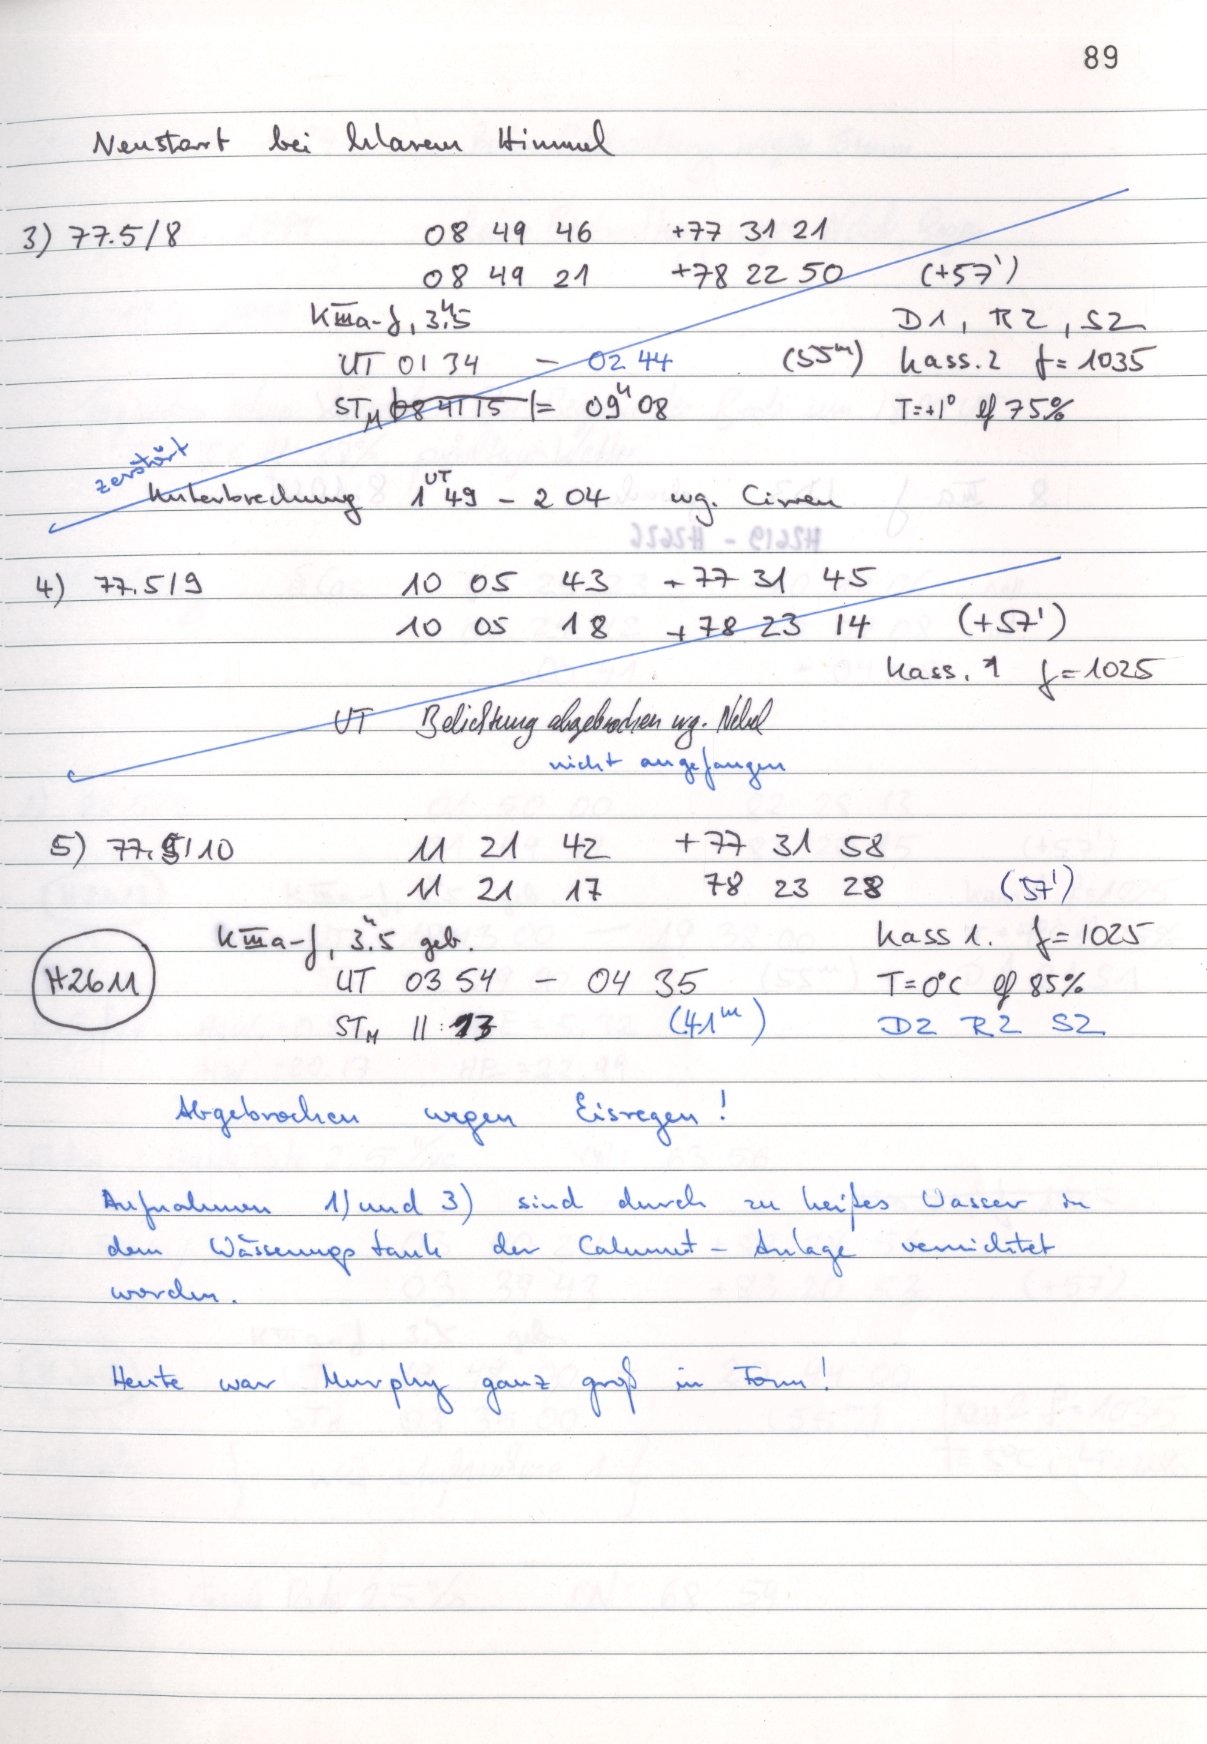 89
Neustart bei klarem Himmel
3) 77.5/8 08 49 46 +77 31 21
08 49 21 +78 22 50 (+57')
KIIIa-J, 3.ʰ5 D1, R2, S2
UT 01 34 – 02 44 (55ᵐ) Kass. 2 f=1035
STM 08 41 15 = 09ʰ08 T=+1° φ 75%
zerstört
Unterbrechung 1ᵁᵀ49 – 2 04 wg. Cirren
4) 77.5/9 10 05 43 +77 31 45
10 05 18 +78 23 14 (+57')
Kass. 1 f=1025
UT Belichtung abgebrochen wg. Nebel
nicht angefangen
5) 77.5/10 11 21 42 +77 31 58
11 21 17 78 23 28 (57')
KIIIa-J, 3.ʰ5 geb. Kass 1. f=1025
H2611 UT 03 54 – 04 35 T=0°C φ 85%
STM 11:13 (41ᵐ) D2 R2 S2
Abgebrochen wegen Eisregen!
Aufnahmen 1) und 3) sind durch zu heißes Wasser in
dem Wässerungstank der Calumet-Anlage vernichtet
worden.
Heute war Murphy ganz groß in Form!